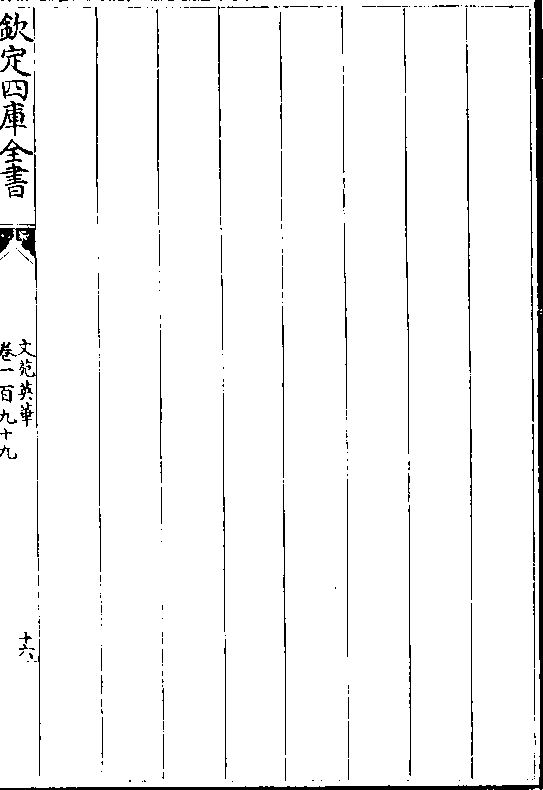 欽定四庫全書
文苑英華
卷一百九十九
十六